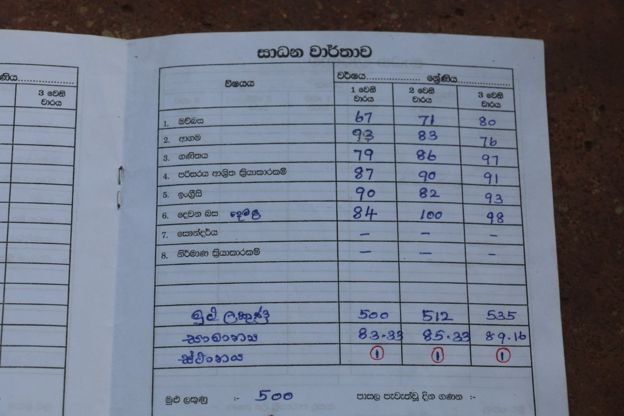 සාධන වාර්තාව
ණිය..................
විෂයය
වර්ෂය.................. ශ්‍රේණිය..................
3 වෙනි වාරය
1 වෙනි වාරය 2 වෙනි වාරය 3 වෙනි වාරය
1. මව්බස 67 71 80
2. ආගම 93 83 76
3. ගණිතය 79 86 97
4. පරිසරය ආශ්‍රිත ක්‍රියාකාරකම් 87 90 91
5. ඉංග්‍රීසි 90 82 93
6. දෙවන බස දෙමළ 84 100 98
7. සෞන්දර්ය – – –
8. නිර්මාණ ක්‍රියාකාරකම් – – –
මුළු ලකුණු 500 512 535
සාමාන්‍යය 83.33 85.33 89.16
ස්ථානය 1 1 1
මුළු ලකුණු :- 500 පාසල පැවැත්වූ දින ගණන :-